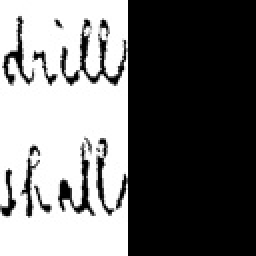 drill
shall